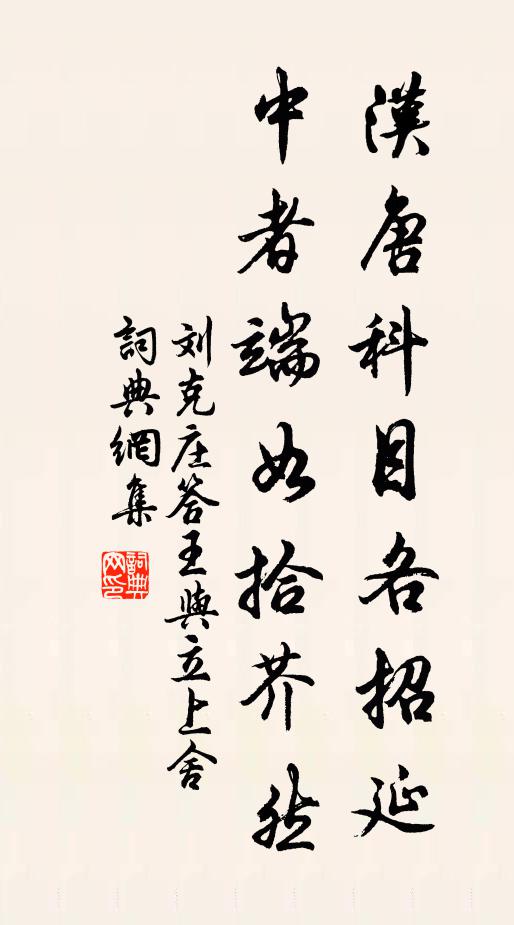 漢唐科目各招延
中者端如拾芥然
刘克庄答王與立上舍
詞典網集
詞典網印